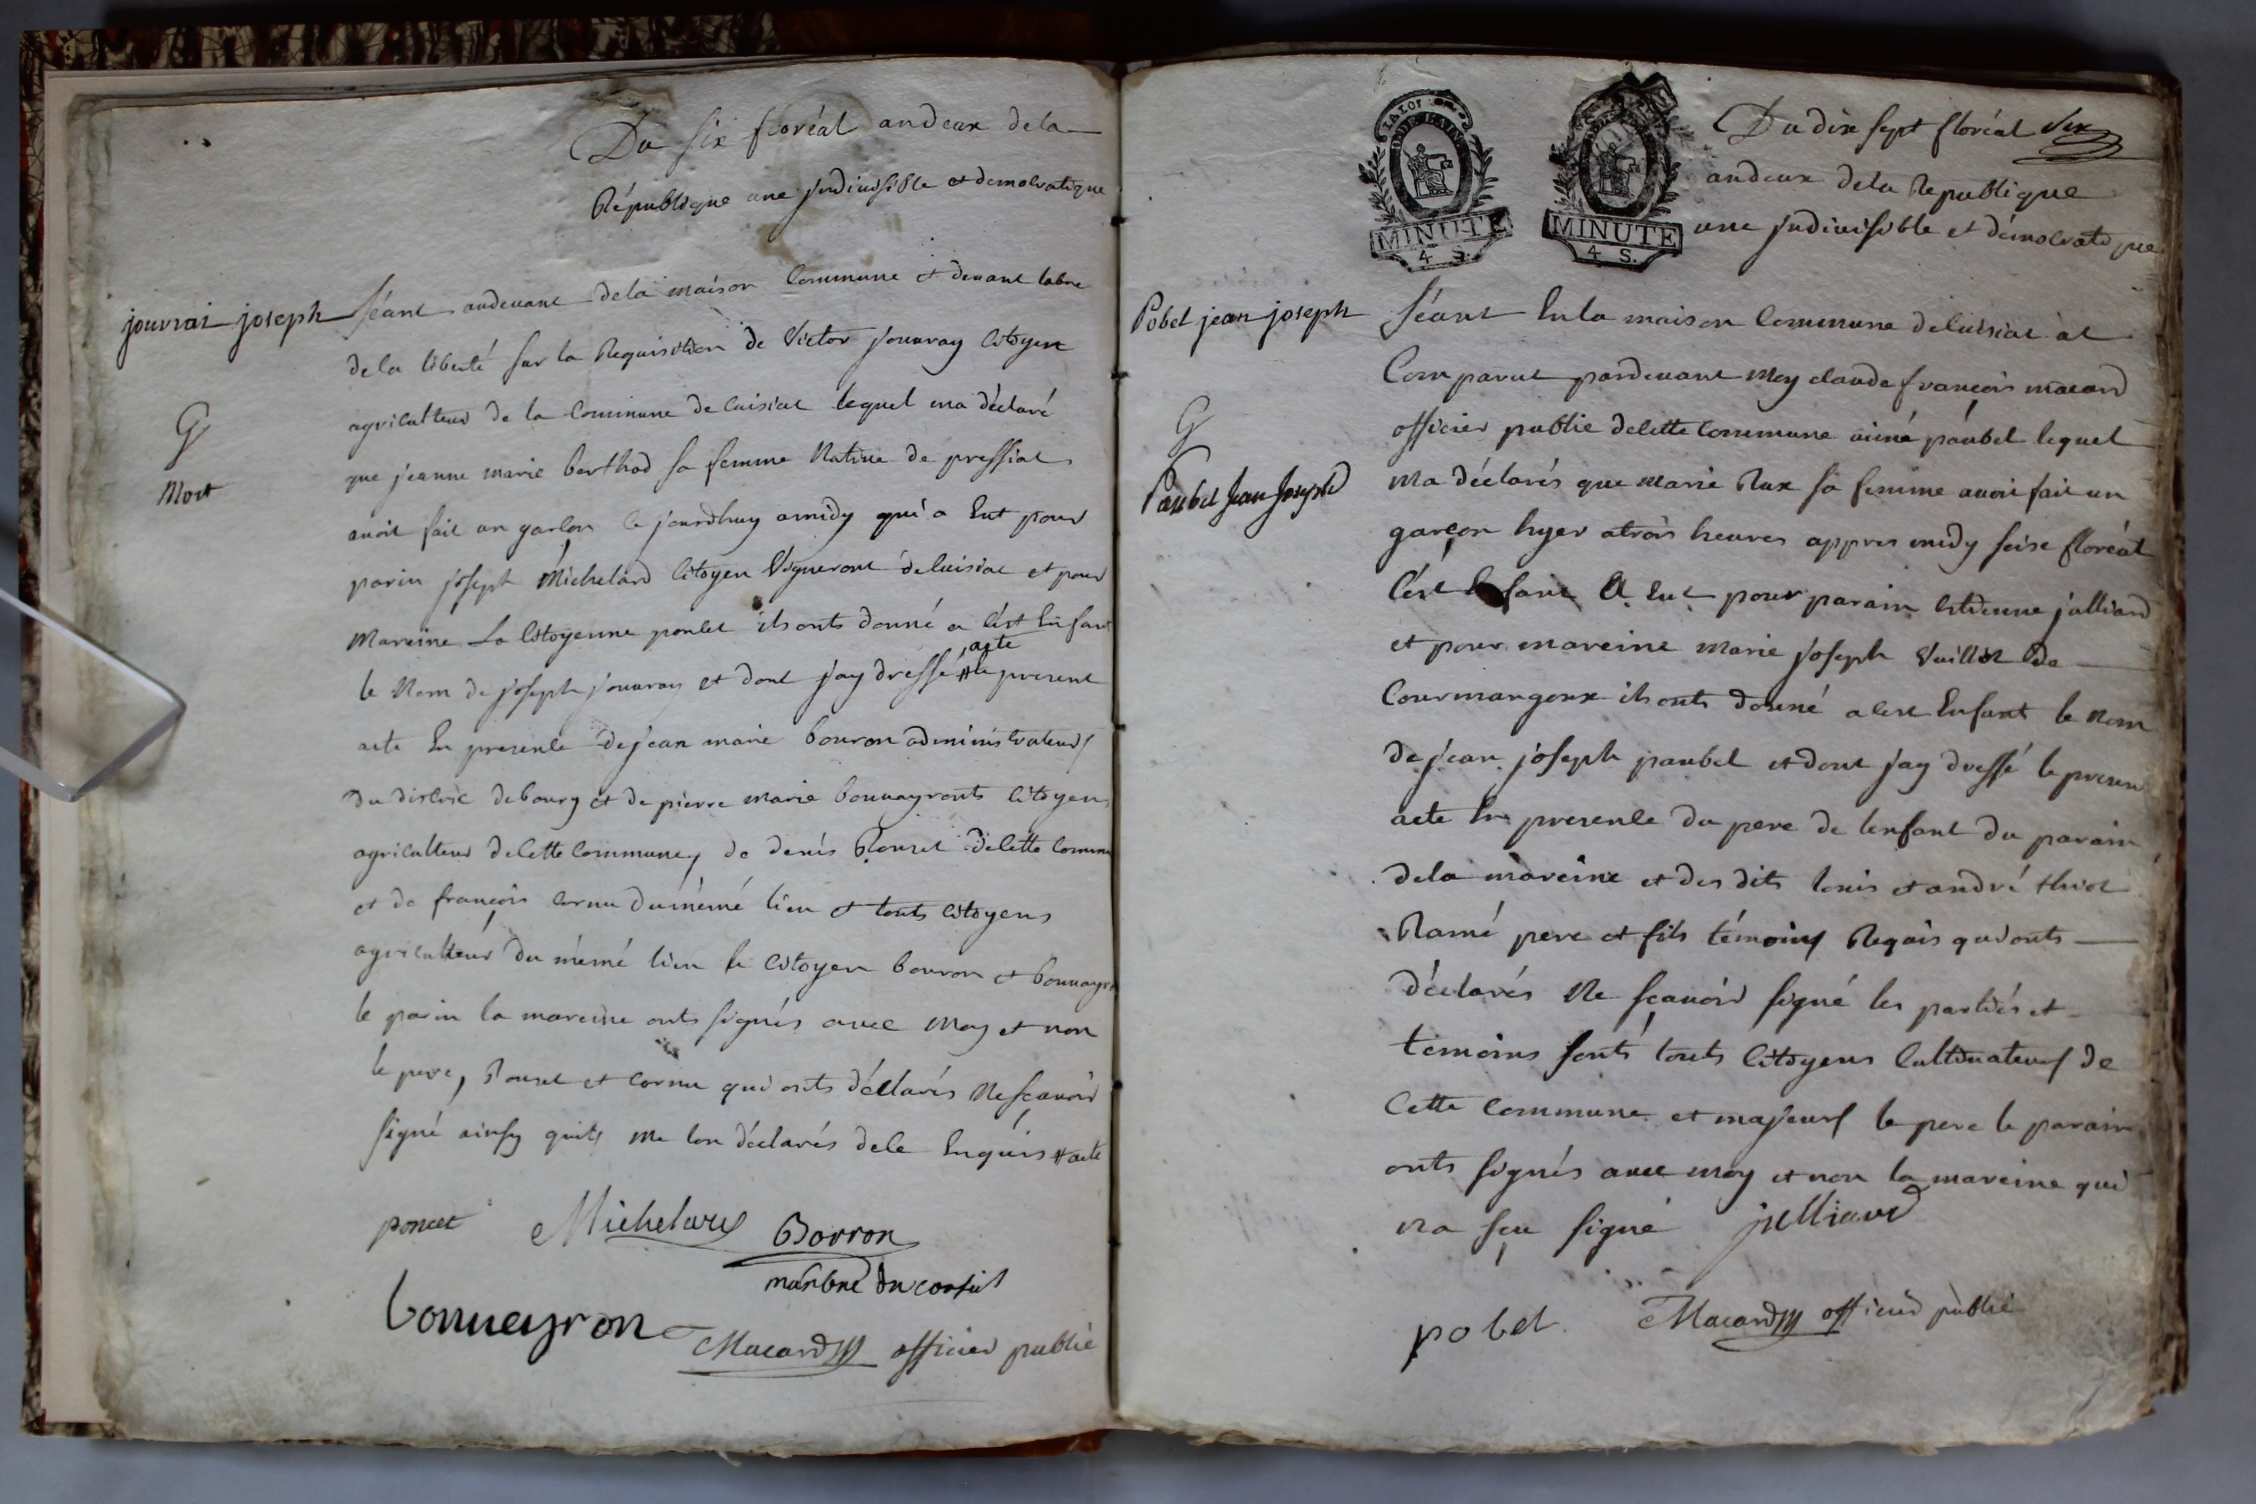 Du six floréal an deux de la
République une jndivisible et democratique
jouvrai joseph
G
Mort
séant au devant de la maison Commune et devant labre
de la liberté sur la Requisition de Victor jouvray Citoyen
agriculteur de la Commune de Cuisiat lequel ma déclaré
que jeanne marie berthod sa femme Native de pressiat
avoit fait un garson le jourdhuy amidy qui a Eut pour
parin joseph Michelard Citoyen Vigneront de Cuisiat et pour
Mareine La Citoyenne poncet ils onts donné a cést Enfant
le Nom de joseph jouvray et dont jay dressé acte le present
acte En presence de jean marie bouron administrateur
du districe de bourg et de pierre marie bonnayronts Citoyens
agriculteur de Cette Commune, de denis Rouset de Cette Commu
et de françois Cornu du mémé lieu et touts Citoyens
agriculteur du mémé lieu le Citoyen bouron et bonnayro
le parin la mareine onts signés avec Moy et non
le pere, Rouset et Cornu qui onts déclarés Ne sçavoir
signé ainsy quils me lon déclarés de ce Enquis acte
poncet Michelard Borron
manbre du consiel
bonneyron Macard officier publié
LA LOI
MINUTE
4 S.
MINUTE
4 S.
Du dix sept floréal
an deux de la Republique
une jndivisible et démocratique
Pobel jean joseph
G
Paubel Jean Joseph
séant En la maison Commune de Cuisiat at
Comparut pardevant Moy claude françois macard
officier publie de Cette Commune aimé paubel lequel
Ma déclarés que marie Rux sa femme avoit fait un
garçon hyer atrois heures appres midy seise floréal
Cést Enfant A Eut pour parain Etienne julliard
et pour mareine marie joseph Vuillot de
Courmangoux ils onts donné a Cest Enfant le Nom
de jean joseph paubel et dont jay dressé le presen
acte En presence du pere de lenfant du parain
de la mareine et des dits louis et andré thiot
Ramé pere et fils témoins Reqüis qui onts
déclarés Ne sçavoir signé les partiés et
témoins sonts touts Citoyens Cultivateurs de
Cette Commune et majeurs le pere le parain
onts signés avec moy et non la mareine qui
na sçu signé julliard
pobel Macard officier publié